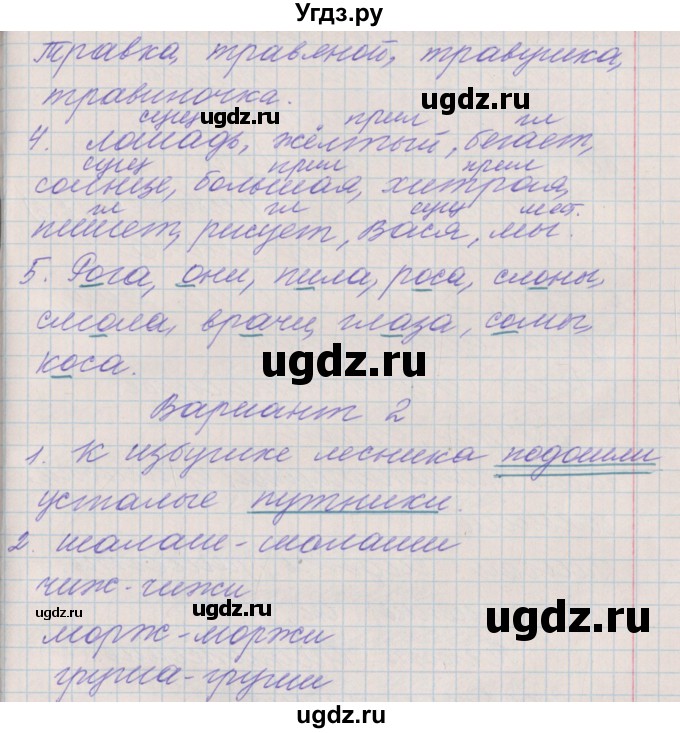 Угдз.ру
Травка, травяной, травушка,
травиночка.
сущ прил гл
4. лошадь, жёлтый, бегает,
сущ прил прил
солнце, большая, хитрая,
гл гл сущ мест.
пишет, рисует, Вася, мы.
5. Рога, они, пила, роса, слоны,
смола, врачи, глаза, сомы,
коса.
Вариант 2
1. К избушке лесника подошли
усталые путники.
2. шалаш - шалаши
чиж - чижи
морж - моржи
груша - груши
ugdz.ru
ugdz.ru
ugdz.ru
ugdz.ru
ugdz.ru
ugdz.ru
ugdz.ru
ugdz.ru
ugdz.ru
ugdz.ru